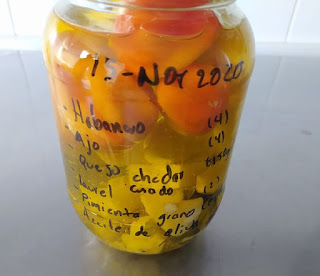 15-Nov 2020
- Habanero (4)
- Ajo (4)
- Queso chedar
- laurel (2)
- Pimienta grano
- Aceite de oliva